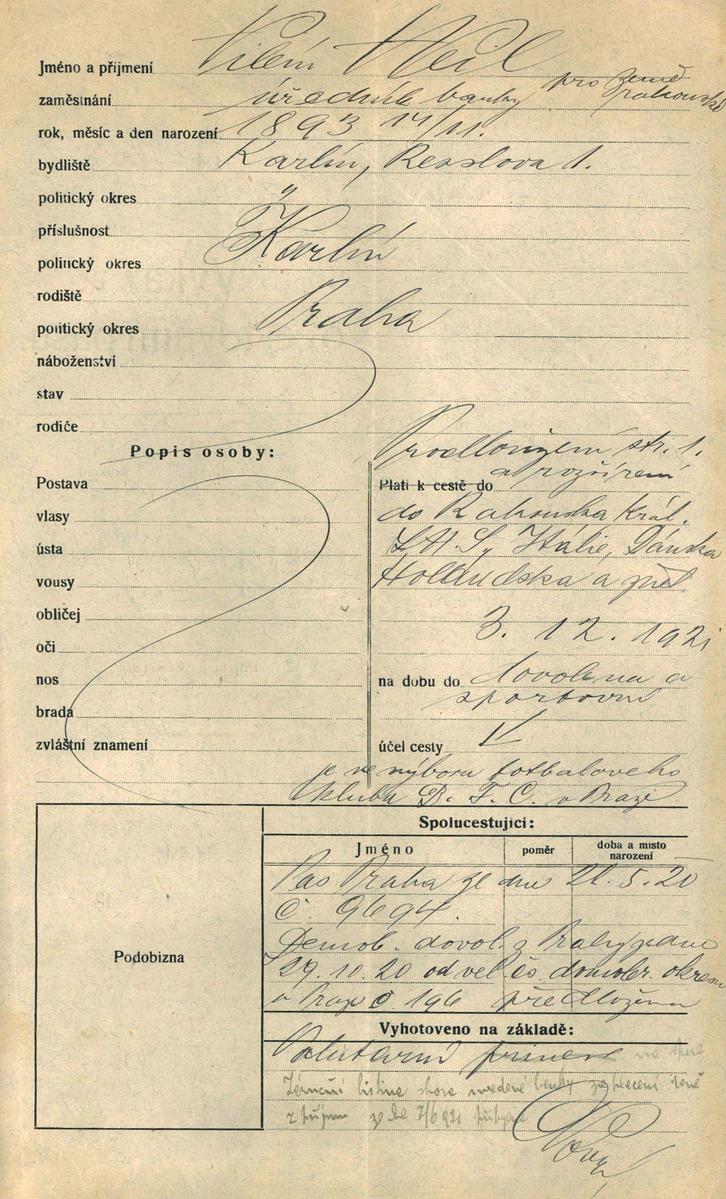 Jméno a příjmení Vilém Heil
zaměstnání úředník banky pro země rakouské
rok, měsíc a den narození 1893 14/11.
bydliště Karlín, Resslova 1.
politický okres "
příslušnost
politický okres Karlín
rodiště
politický okres Praha
náboženství
stav
rodiče
Popis osoby:
Postava
vlasy
ústa
vousy
obličej
oči
nos
brada
zvláštní znamení
Prodloužení str. 1.
a rozšíření
Platí k cestě do
do Rakouska Král.
S.H.S., Italie, Dánska
Holandska a zpět
3. 12. 1921
na dobu do dovolena a
sportovní
účel cesty
je ve výboru fotbaloveho
klubu D. F. C. v Praze
Podobizna
Spolucestující:
Jméno poměr doba a místo
narození
Pas Praha ze dne 21. 5. 20
č. 9694.
Demob. dovol. z Prahy ze dne
29. 10. 20 od vel. čs. domobr. okresu
v Praze č 196 předložena
Vyhotoveno na základě:
listina shora uvedené banky zaplacení daně
ze dne 7/6 921